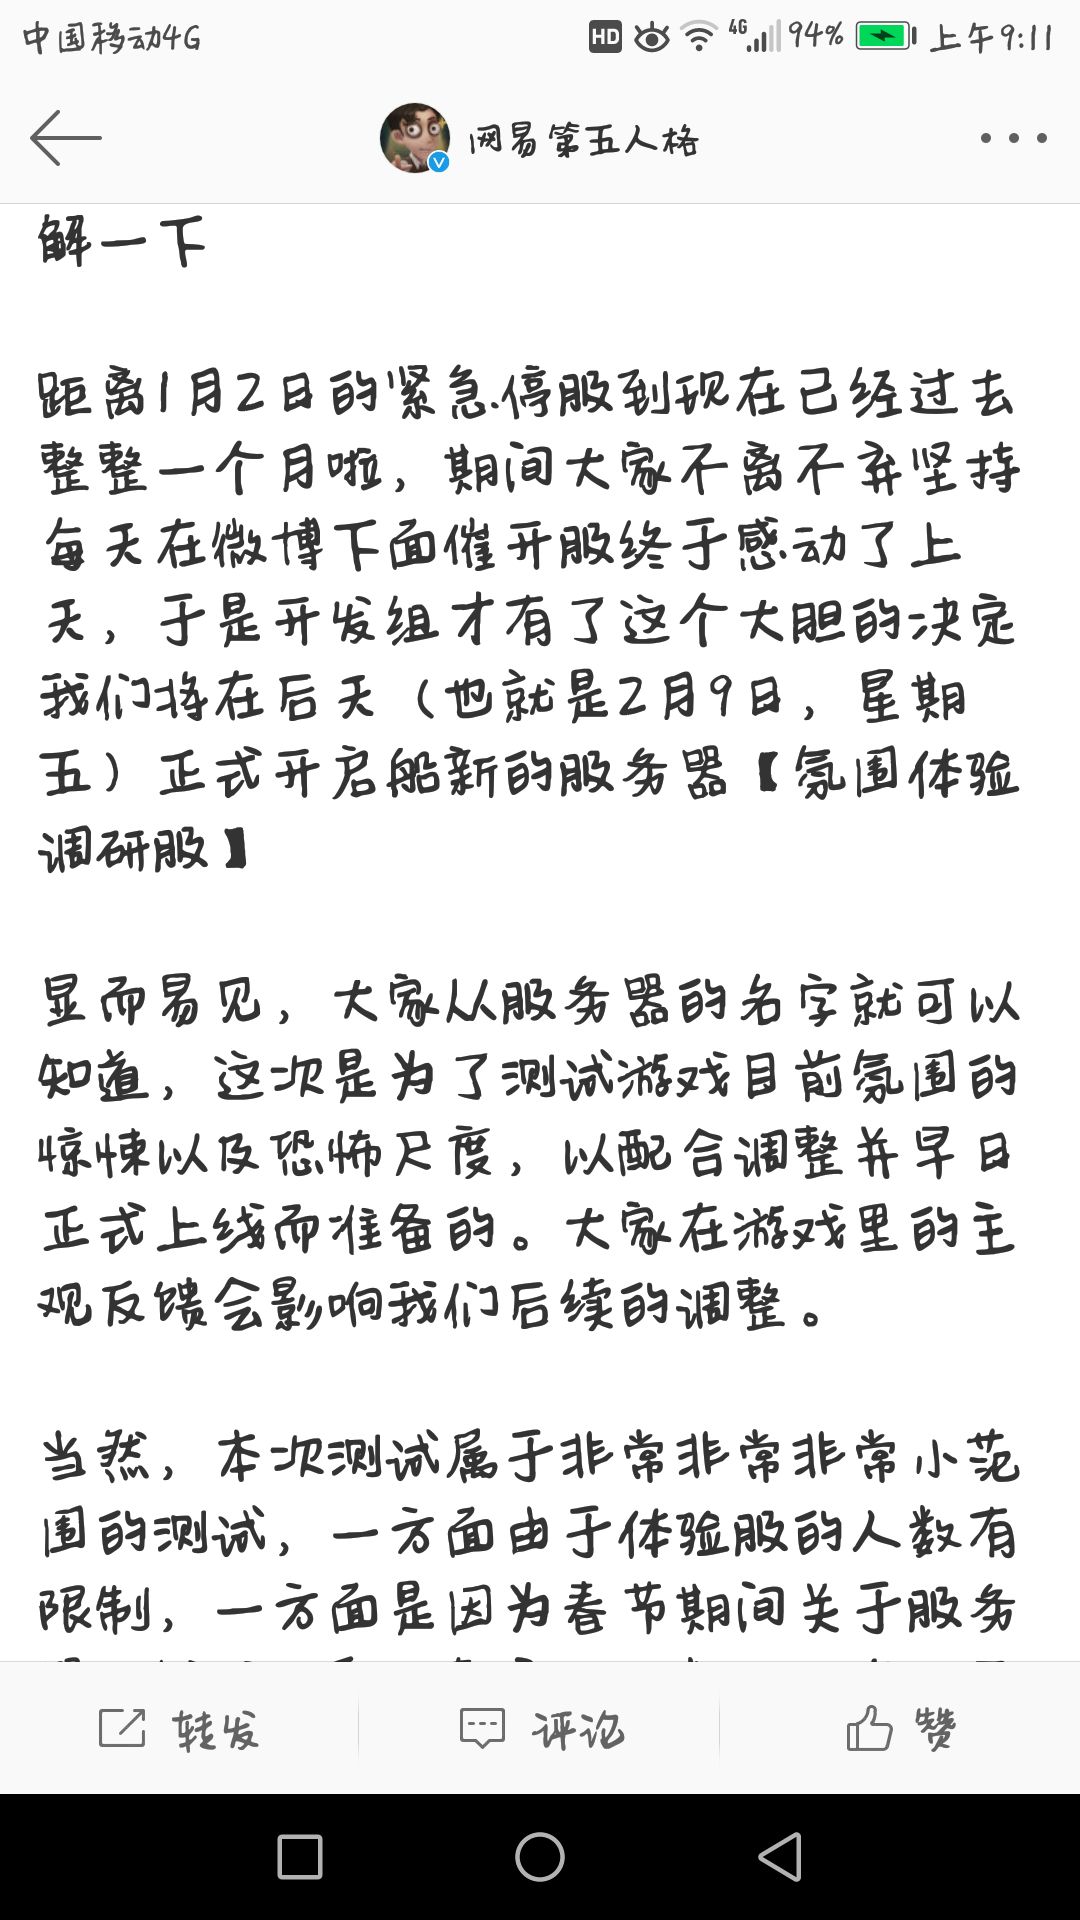 中国移动4G
HD
4G
94%
上午9:11
网易第五人格
解一下
距离1月2日的紧急停服到现在已经过去
整整一个月啦，期间大家不离不弃坚持
每天在微博下面催开服终于感动了上
天，于是开发组才有了这个大胆的决定
我们将在后天（也就是2月9日，星期
五）正式开启船新的服务器【氛围体验
调研服】
显而易见，大家从服务器的名字就可以
知道，这次是为了测试游戏目前氛围的
惊悚以及恐怖尺度，以配合调整并早日
正式上线而准备的。大家在游戏里的主
观反馈会影响我们后续的调整。
当然，本次测试属于非常非常非常小范
围的测试，一方面由于体验服的人数有
限制，一方面是因为春节期间关于服务
转发
评论
赞